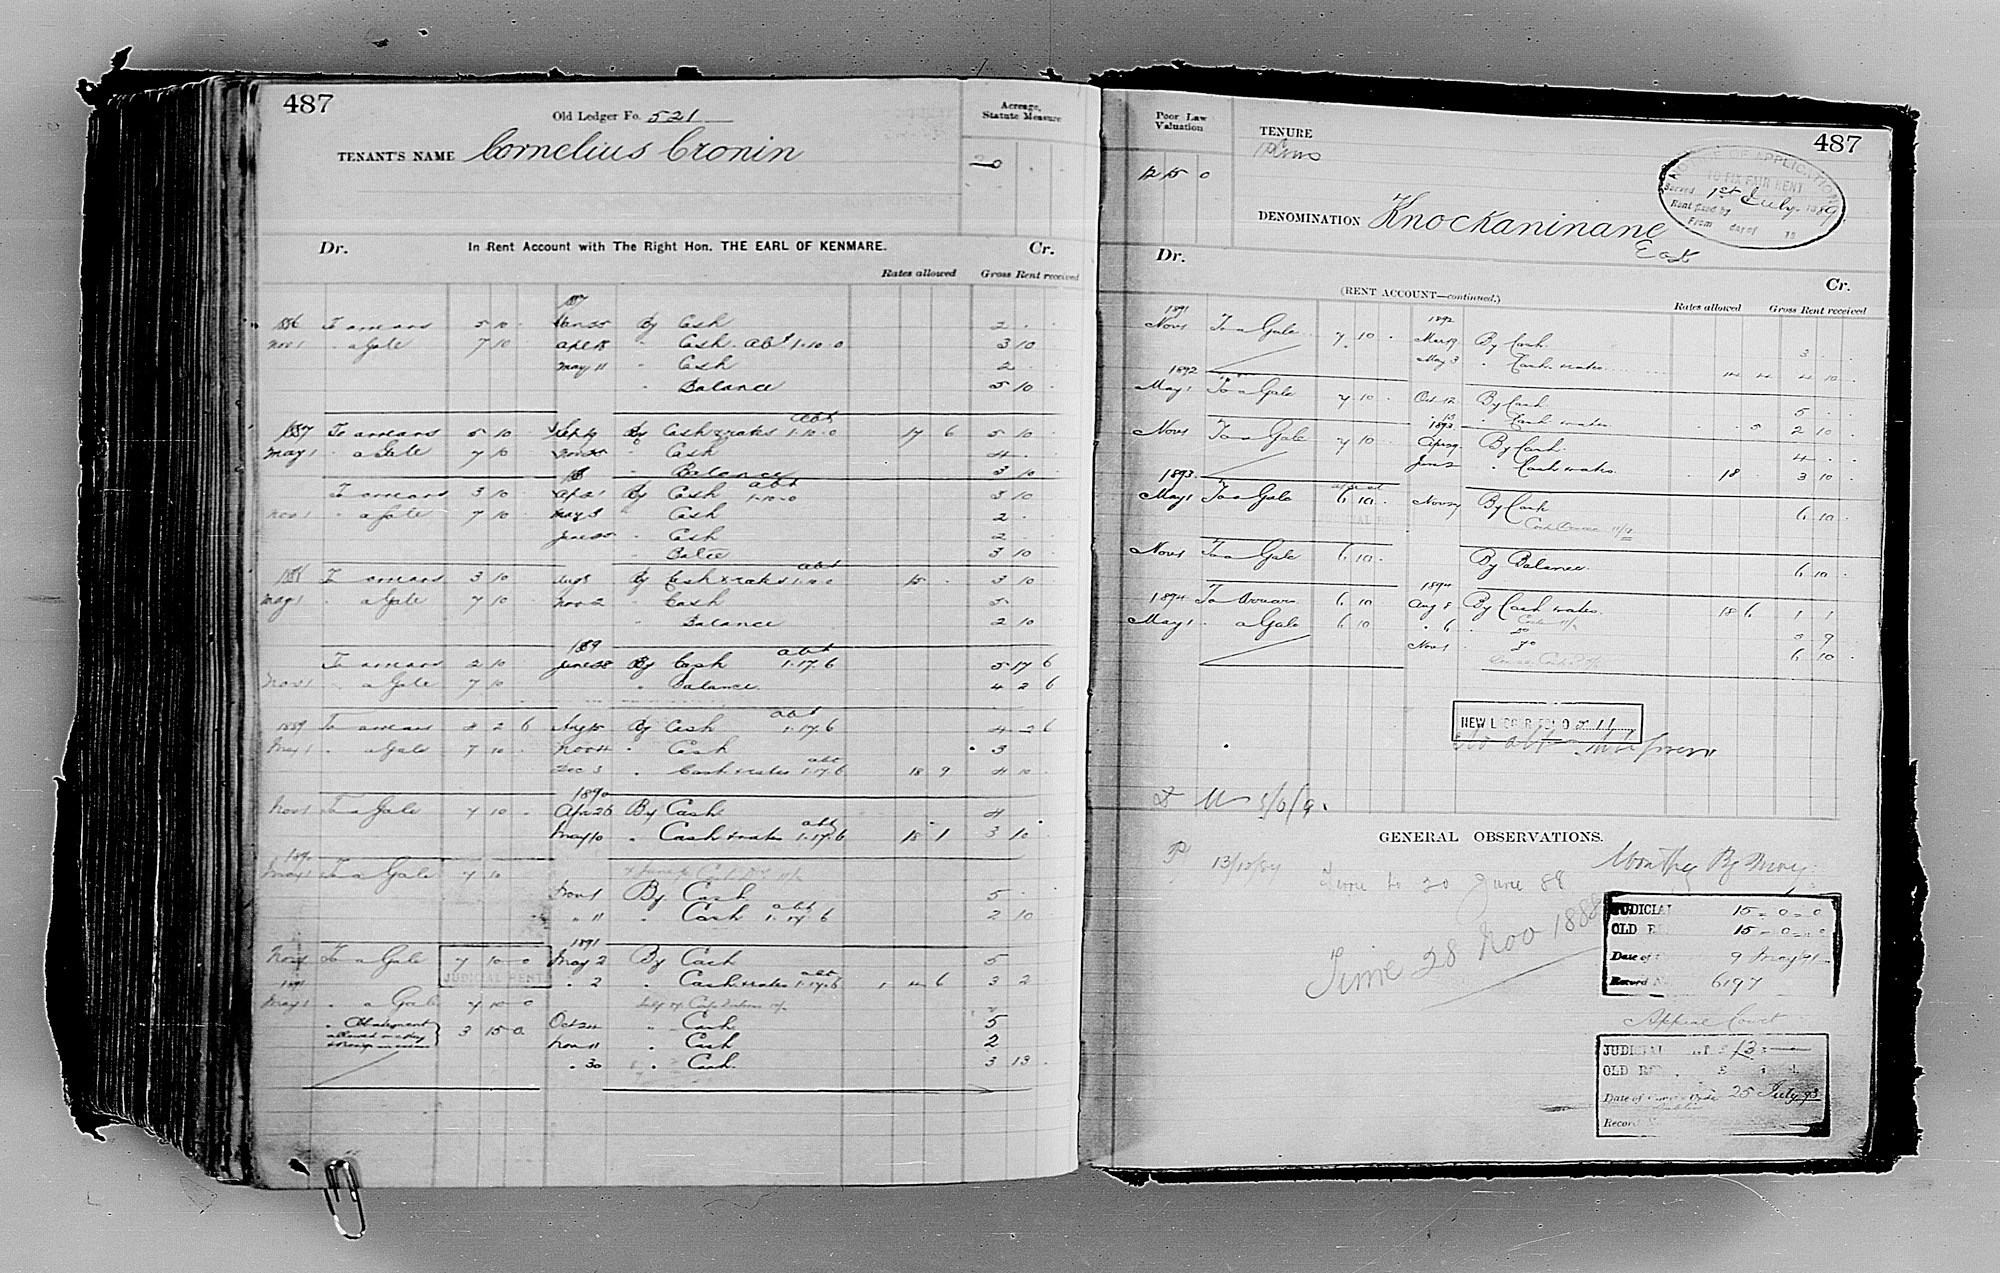 487
Old Ledger Fo. 521
Acreage, Statute Measure
TENANT'S NAME Cornelius Cronin
20
Dr. In Rent Account with The Right Hon. THE EARL OF KENMARE. Cr.
Rates allowed Gross Rent received
1887
1886 To arrears 5 10 Jan 25 By Cash 2
Nov 1 " a Gale 7 10 Apl 18 " Cash abt 1.10.0 3 10
May 11 " Cash 2
" Balance 5 10
1887 To arrears 5 10 Sept 19 By Cash & rates abt 1.10.0 17 6 5 10
May 1 " a Gale 7 10 Nov 25 " Cash 4
" Balance 3 10
To arrears 3 10 Apl 21 By Cash abt 1.10.0 3 10
Nov 1 " a Gale 7 10 May 9 " Cash 2
June 25 " Cash 2
" Balce 3 10
1888 To arrears 3 10 Aug By Cash & rates abt 15 3 10
May 1 " a Gale 7 10 Nov 2 " Cash 5
" Balance 2 10
1889
To arrears 2 10 June 28 By Cash abt 1.17.6 5 17 6
Nov 1 " a Gale 7 10 " Balance 4 2 6
1889 To arrears 4 2 6 Aug 15 By Cash abt 1.17.6 4 2 6
May 1 " a Gale 7 10 Nov 11 " Cash 3
Dec 3 " Cash & rates abt 1.17.6 18 9 4 10
1890
Nov 1 To a Gale 7 10 Apr 26 By Cash 4
May 10 " Cash & rates abt 1.17.6 18 1 3 10
1890
May 1 To a Gale 7 10
Nov 1 By Cash 5
" 11 " Cash abt 1.17.6 2 10
1891
Nov 1 To a Gale 7 10 0 May 2 By Cash 5
JUDICIAL RENT
1891 " 2 " Cash & rates abt 1.17.6 1 4 6 3 2
May 1 " a Gale 7 10 0
" Abatement allowed 3 15 0 Oct 24 " Cash 5
Nov 11 " Cash 2
" 30 " Cash 3 13
Poor Law Valuation
TENURE
487
12 15 0
NOTICE OF APPLICATION
TO FIX FAIR RENT
Served 1st July 1889
Rent fixed by
From day of 18
DENOMINATION Knockaninane East
Dr. Cr.
(RENT ACCOUNT—continued.)
Rates allowed Gross Rent received
1891 1892
Nov 1 To a Gale 7 10 Mar 19 By Cash 3
May 3 " Cash & rates 14 4 10
1892
May 1 To a Gale 7 10 Oct 12 By Cash 5
" 13 " Cash & rates 5 2 10
1893
Nov 1 To a Gale 7 10 Apr 29 By Cash 4
June 2 " Cash & rates 18 3 10
1893
May 1 To a Gale 6 10 Nov 24 By Cash 6 10
Nov 1 To a Gale 6 10 By Balance 6 10
1894
1894 To Arrears 6 10 Aug 8 By Cash & rates 18 6 1 1
May 1 " a Gale 6 10 " 6 " Do 3 9
Nov 1 " Do 6 10
NEW LEDGER FOLIO 511
GENERAL OBSERVATIONS.
Time to 20 June 88
Time 28 Nov 1888
JUDICIAL 15 - 0 - 0
OLD RE 15 - 0 - 0
Date of 9 May 91
Record 6197
Appeal Court
JUDICIAL 13
OLD RE
Date of 25 July 93
Record